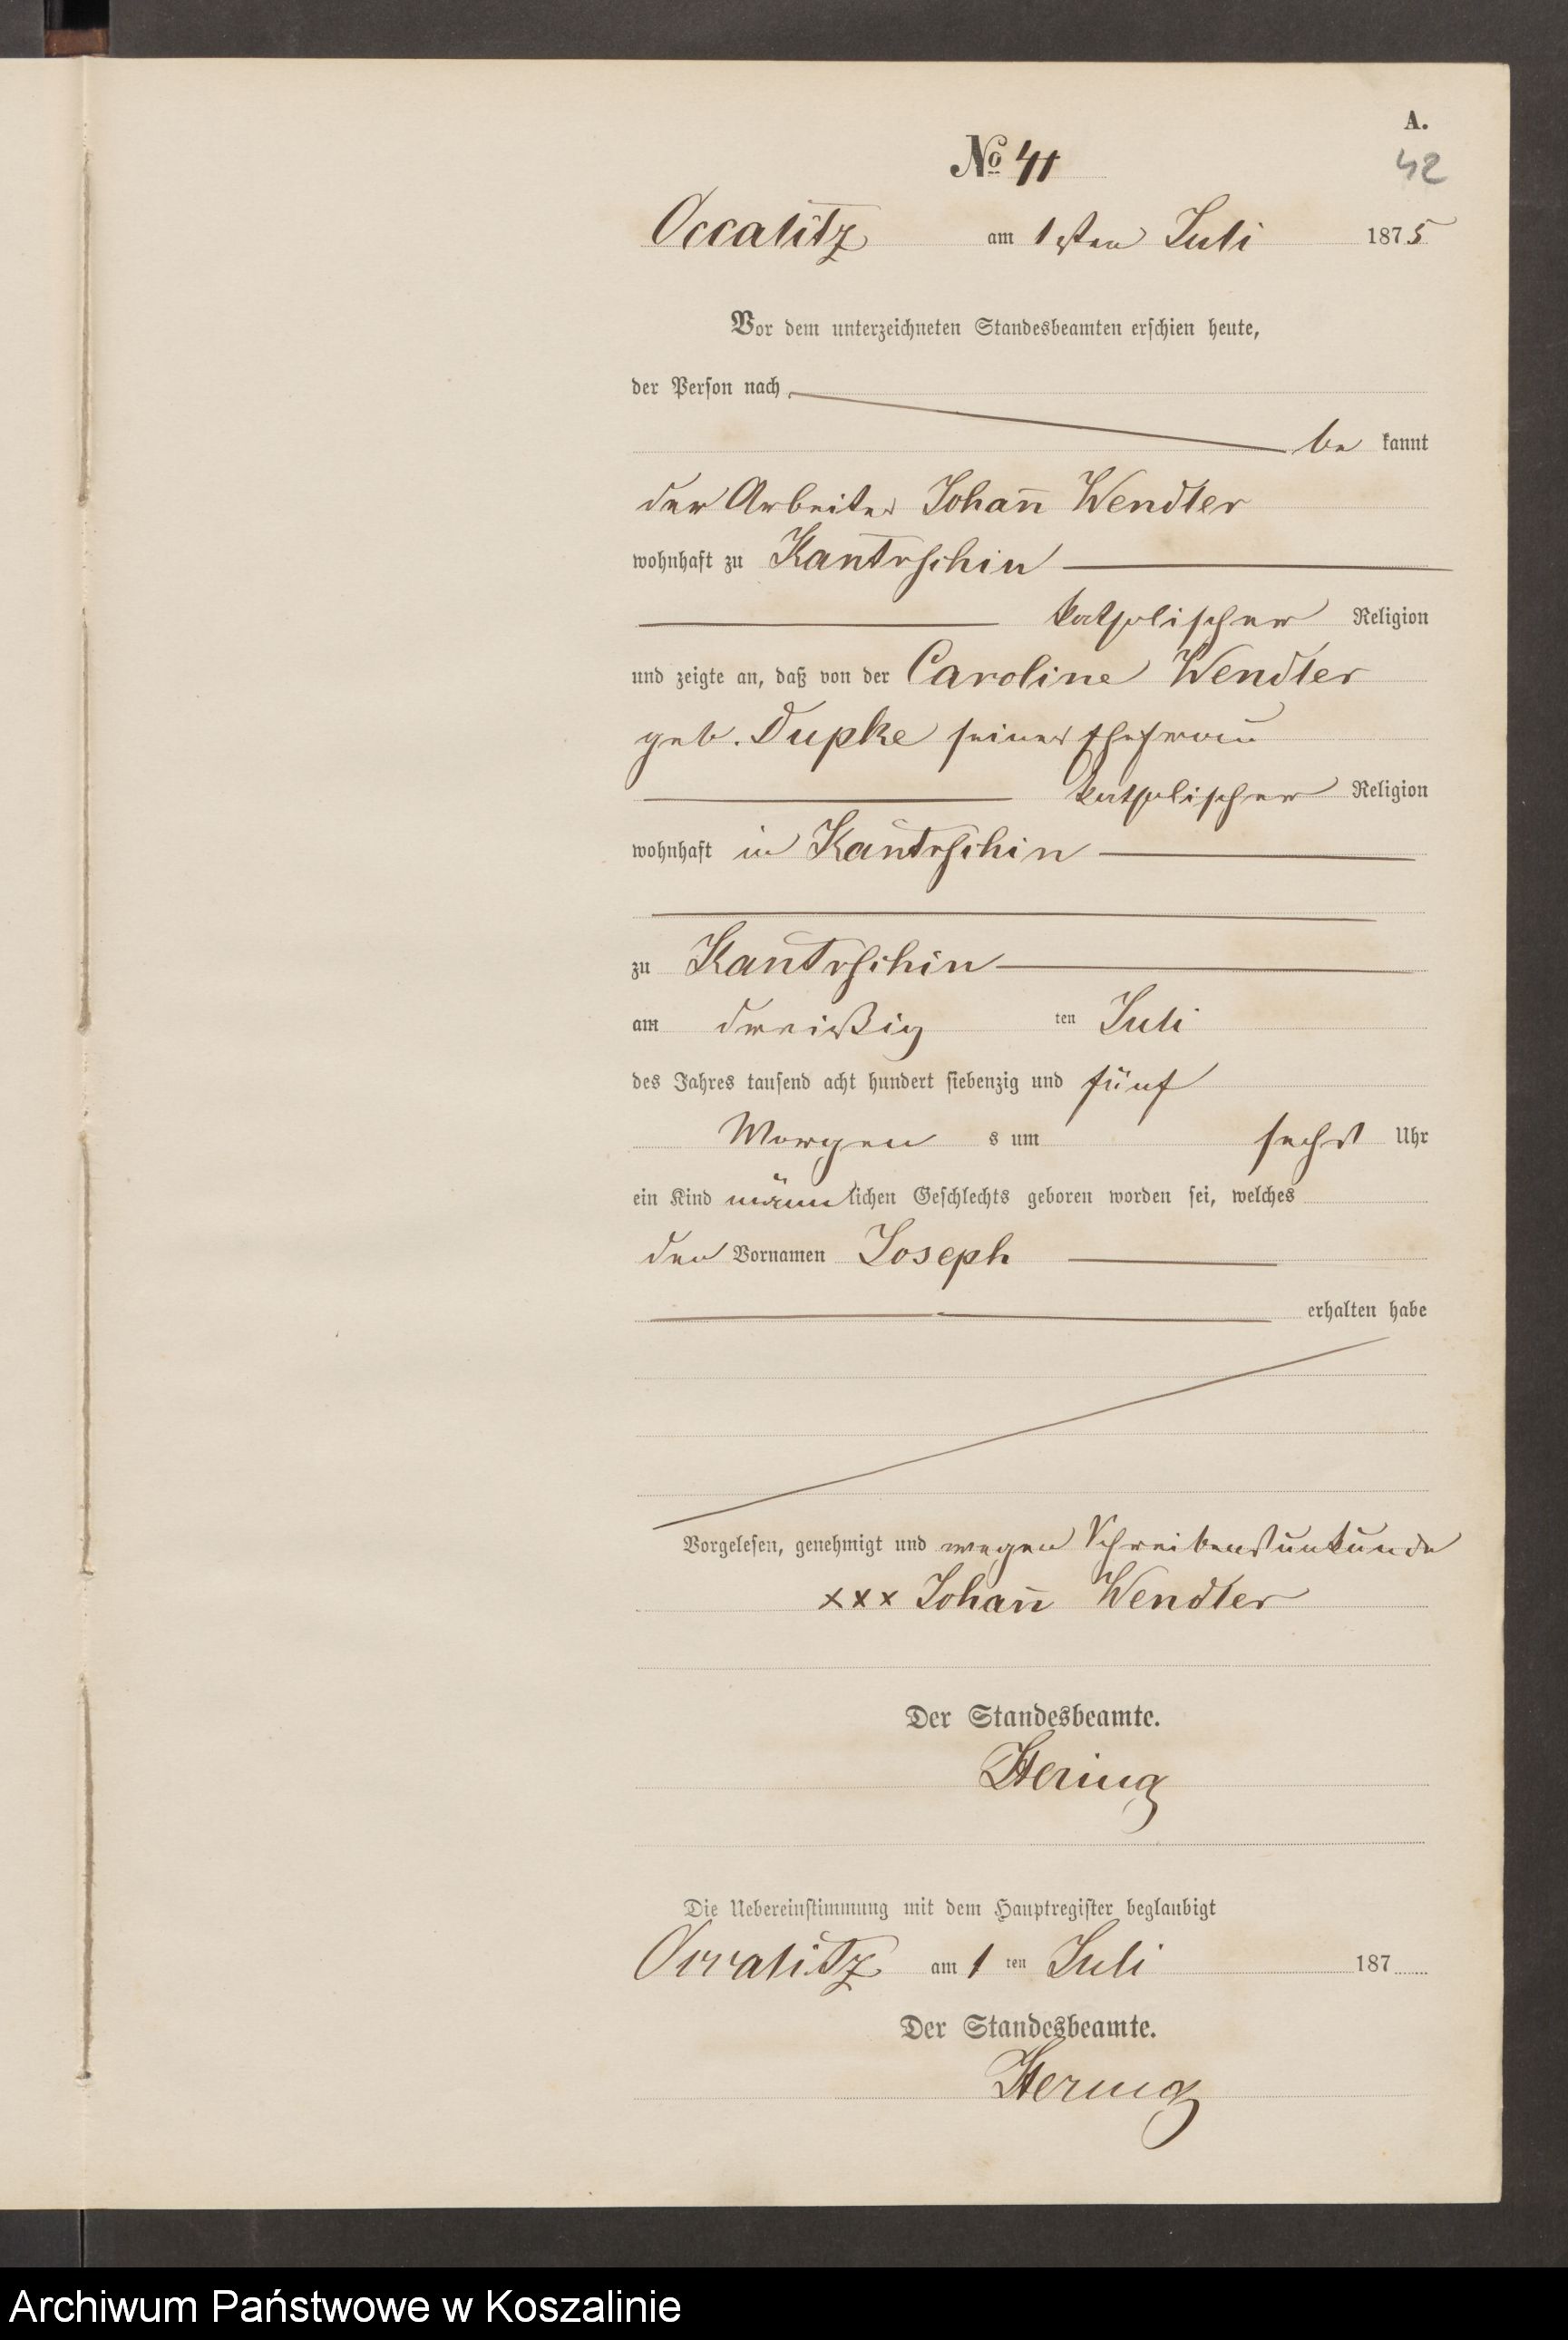 A.
№ 41
42
Occalitz am 1sten Juli 1875
Vor dem unterzeichneten Standesbeamten erschien heute,
der Person nach
be kannt
der Arbeiter Johan̄ Wendler
wohnhaft zu Kantrschin
katholischer Religion
und zeigte an, daß von der Caroline Wendler
geb. Dupke seiner Ehefrau
katholischer Religion
wohnhaft in Kantrschin
zu Kantrschin
am dreißig ten Juli
des Jahres tausend acht hundert siebenzig und fünf
Morgen s um sechs Uhr
ein Kind männlichen Geschlechts geboren worden sei, welches
den Vornamen Joseph
erhalten habe
Vorgelesen, genehmigt und wegen Schreibensunkunde
xxx Johan̄ Wendler
Der Standesbeamte.
Hering
Die Uebereinstimmung mit dem Hauptregister beglaubigt
Occalitz am 1 ten Juli 187
Der Standesbeamte.
Hering
Archiwum Państwowe w Koszalinie